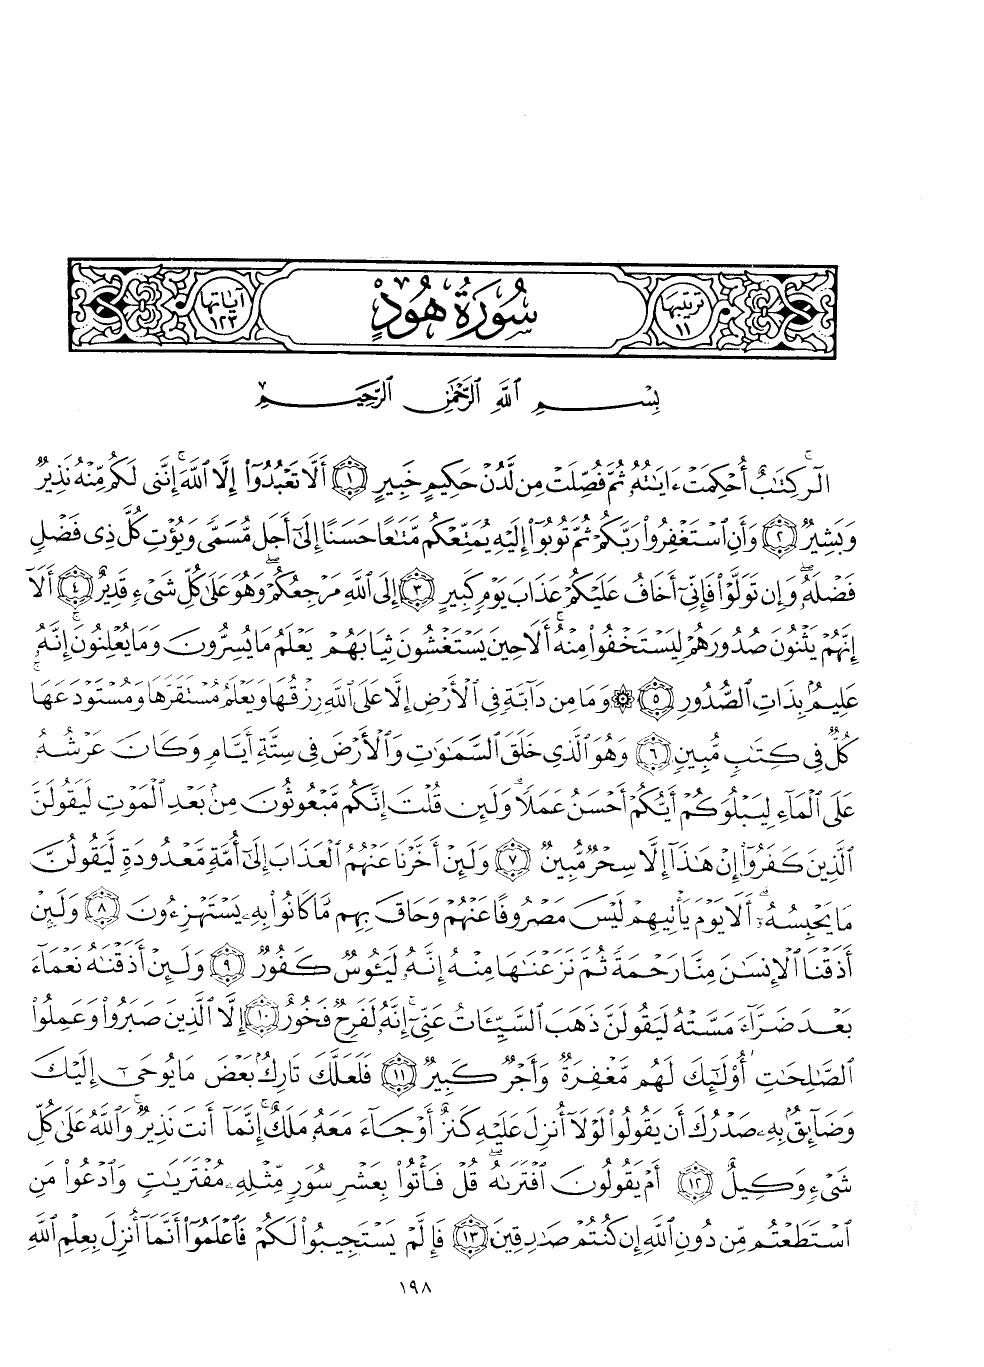 ترتيبها ١١ سُورَةُ هُودٍ آياتها ١٢٣
بِسْمِ ٱللَّهِ ٱلرَّحْمَٰنِ ٱلرَّحِيمِ
الٓرۚ كِتَٰبٌ أُحْكِمَتْ ءَايَٰتُهُۥ ثُمَّ فُصِّلَتْ مِن لَّدُنْ حَكِيمٍ خَبِيرٍ ١ أَلَّا تَعْبُدُوٓا۟ إِلَّا ٱللَّهَۚ إِنَّنِى لَكُم مِّنْهُ نَذِيرٌ
وَبَشِيرٌ ٢ وَأَنِ ٱسْتَغْفِرُوا۟ رَبَّكُمْ ثُمَّ تُوبُوٓا۟ إِلَيْهِ يُمَتِّعْكُم مَّتَٰعًا حَسَنًا إِلَىٰٓ أَجَلٍ مُّسَمًّى وَيُؤْتِ كُلَّ ذِى فَضْلٍ
فَضْلَهُۥۖ وَإِن تَوَلَّوْا۟ فَإِنِّىٓ أَخَافُ عَلَيْكُمْ عَذَابَ يَوْمٍ كَبِيرٍ ٣ إِلَى ٱللَّهِ مَرْجِعُكُمْۖ وَهُوَ عَلَىٰ كُلِّ شَىْءٍ قَدِيرٌ ٤ أَلَآ
إِنَّهُمْ يَثْنُونَ صُدُورَهُمْ لِيَسْتَخْفُوا۟ مِنْهُۚ أَلَا حِينَ يَسْتَغْشُونَ ثِيَابَهُمْ يَعْلَمُ مَا يُسِرُّونَ وَمَا يُعْلِنُونَۚ إِنَّهُۥ
عَلِيمٌۢ بِذَاتِ ٱلصُّدُورِ ٥ ۞ وَمَا مِن دَآبَّةٍ فِى ٱلْأَرْضِ إِلَّا عَلَى ٱللَّهِ رِزْقُهَا وَيَعْلَمُ مُسْتَقَرَّهَا وَمُسْتَوْدَعَهَاۚ
كُلٌّ فِى كِتَٰبٍ مُّبِينٍ ٦ وَهُوَ ٱلَّذِى خَلَقَ ٱلسَّمَٰوَٰتِ وَٱلْأَرْضَ فِى سِتَّةِ أَيَّامٍ وَكَانَ عَرْشُهُۥ
عَلَى ٱلْمَآءِ لِيَبْلُوَكُمْ أَيُّكُمْ أَحْسَنُ عَمَلًاۗ وَلَئِن قُلْتَ إِنَّكُم مَّبْعُوثُونَ مِنۢ بَعْدِ ٱلْمَوْتِ لَيَقُولَنَّ
ٱلَّذِينَ كَفَرُوٓا۟ إِنْ هَٰذَآ إِلَّا سِحْرٌ مُّبِينٌ ٧ وَلَئِنْ أَخَّرْنَا عَنْهُمُ ٱلْعَذَابَ إِلَىٰٓ أُمَّةٍ مَّعْدُودَةٍ لَّيَقُولُنَّ
مَا يَحْبِسُهُۥٓۗ أَلَا يَوْمَ يَأْتِيهِمْ لَيْسَ مَصْرُوفًا عَنْهُمْ وَحَاقَ بِهِم مَّا كَانُوا۟ بِهِۦ يَسْتَهْزِءُونَ ٨ وَلَئِنْ
أَذَقْنَا ٱلْإِنسَٰنَ مِنَّا رَحْمَةً ثُمَّ نَزَعْنَٰهَا مِنْهُ إِنَّهُۥ لَيَـُٔوسٌ كَفُورٌ ٩ وَلَئِنْ أَذَقْنَٰهُ نَعْمَآءَ
بَعْدَ ضَرَّآءَ مَسَّتْهُ لَيَقُولَنَّ ذَهَبَ ٱلسَّيِّـَٔاتُ عَنِّىٓۚ إِنَّهُۥ لَفَرِحٌ فَخُورٌ ١٠ إِلَّا ٱلَّذِينَ صَبَرُوا۟ وَعَمِلُوا۟
ٱلصَّٰلِحَٰتِ أُو۟لَٰٓئِكَ لَهُم مَّغْفِرَةٌ وَأَجْرٌ كَبِيرٌ ١١ فَلَعَلَّكَ تَارِكٌۢ بَعْضَ مَا يُوحَىٰٓ إِلَيْكَ
وَضَآئِقٌۢ بِهِۦ صَدْرُكَ أَن يَقُولُوا۟ لَوْلَآ أُنزِلَ عَلَيْهِ كَنزٌ أَوْ جَآءَ مَعَهُۥ مَلَكٌۚ إِنَّمَآ أَنتَ نَذِيرٌۚ وَٱللَّهُ عَلَىٰ كُلِّ
شَىْءٍ وَكِيلٌ ١٢ أَمْ يَقُولُونَ ٱفْتَرَىٰهُۖ قُلْ فَأْتُوا۟ بِعَشْرِ سُوَرٍ مِّثْلِهِۦ مُفْتَرَيَٰتٍ وَٱدْعُوا۟ مَنِ
ٱسْتَطَعْتُم مِّن دُونِ ٱللَّهِ إِن كُنتُمْ صَٰدِقِينَ ١٣ فَإِلَّمْ يَسْتَجِيبُوا۟ لَكُمْ فَٱعْلَمُوٓا۟ أَنَّمَآ أُنزِلَ بِعِلْمِ ٱللَّهِ
١٩٨